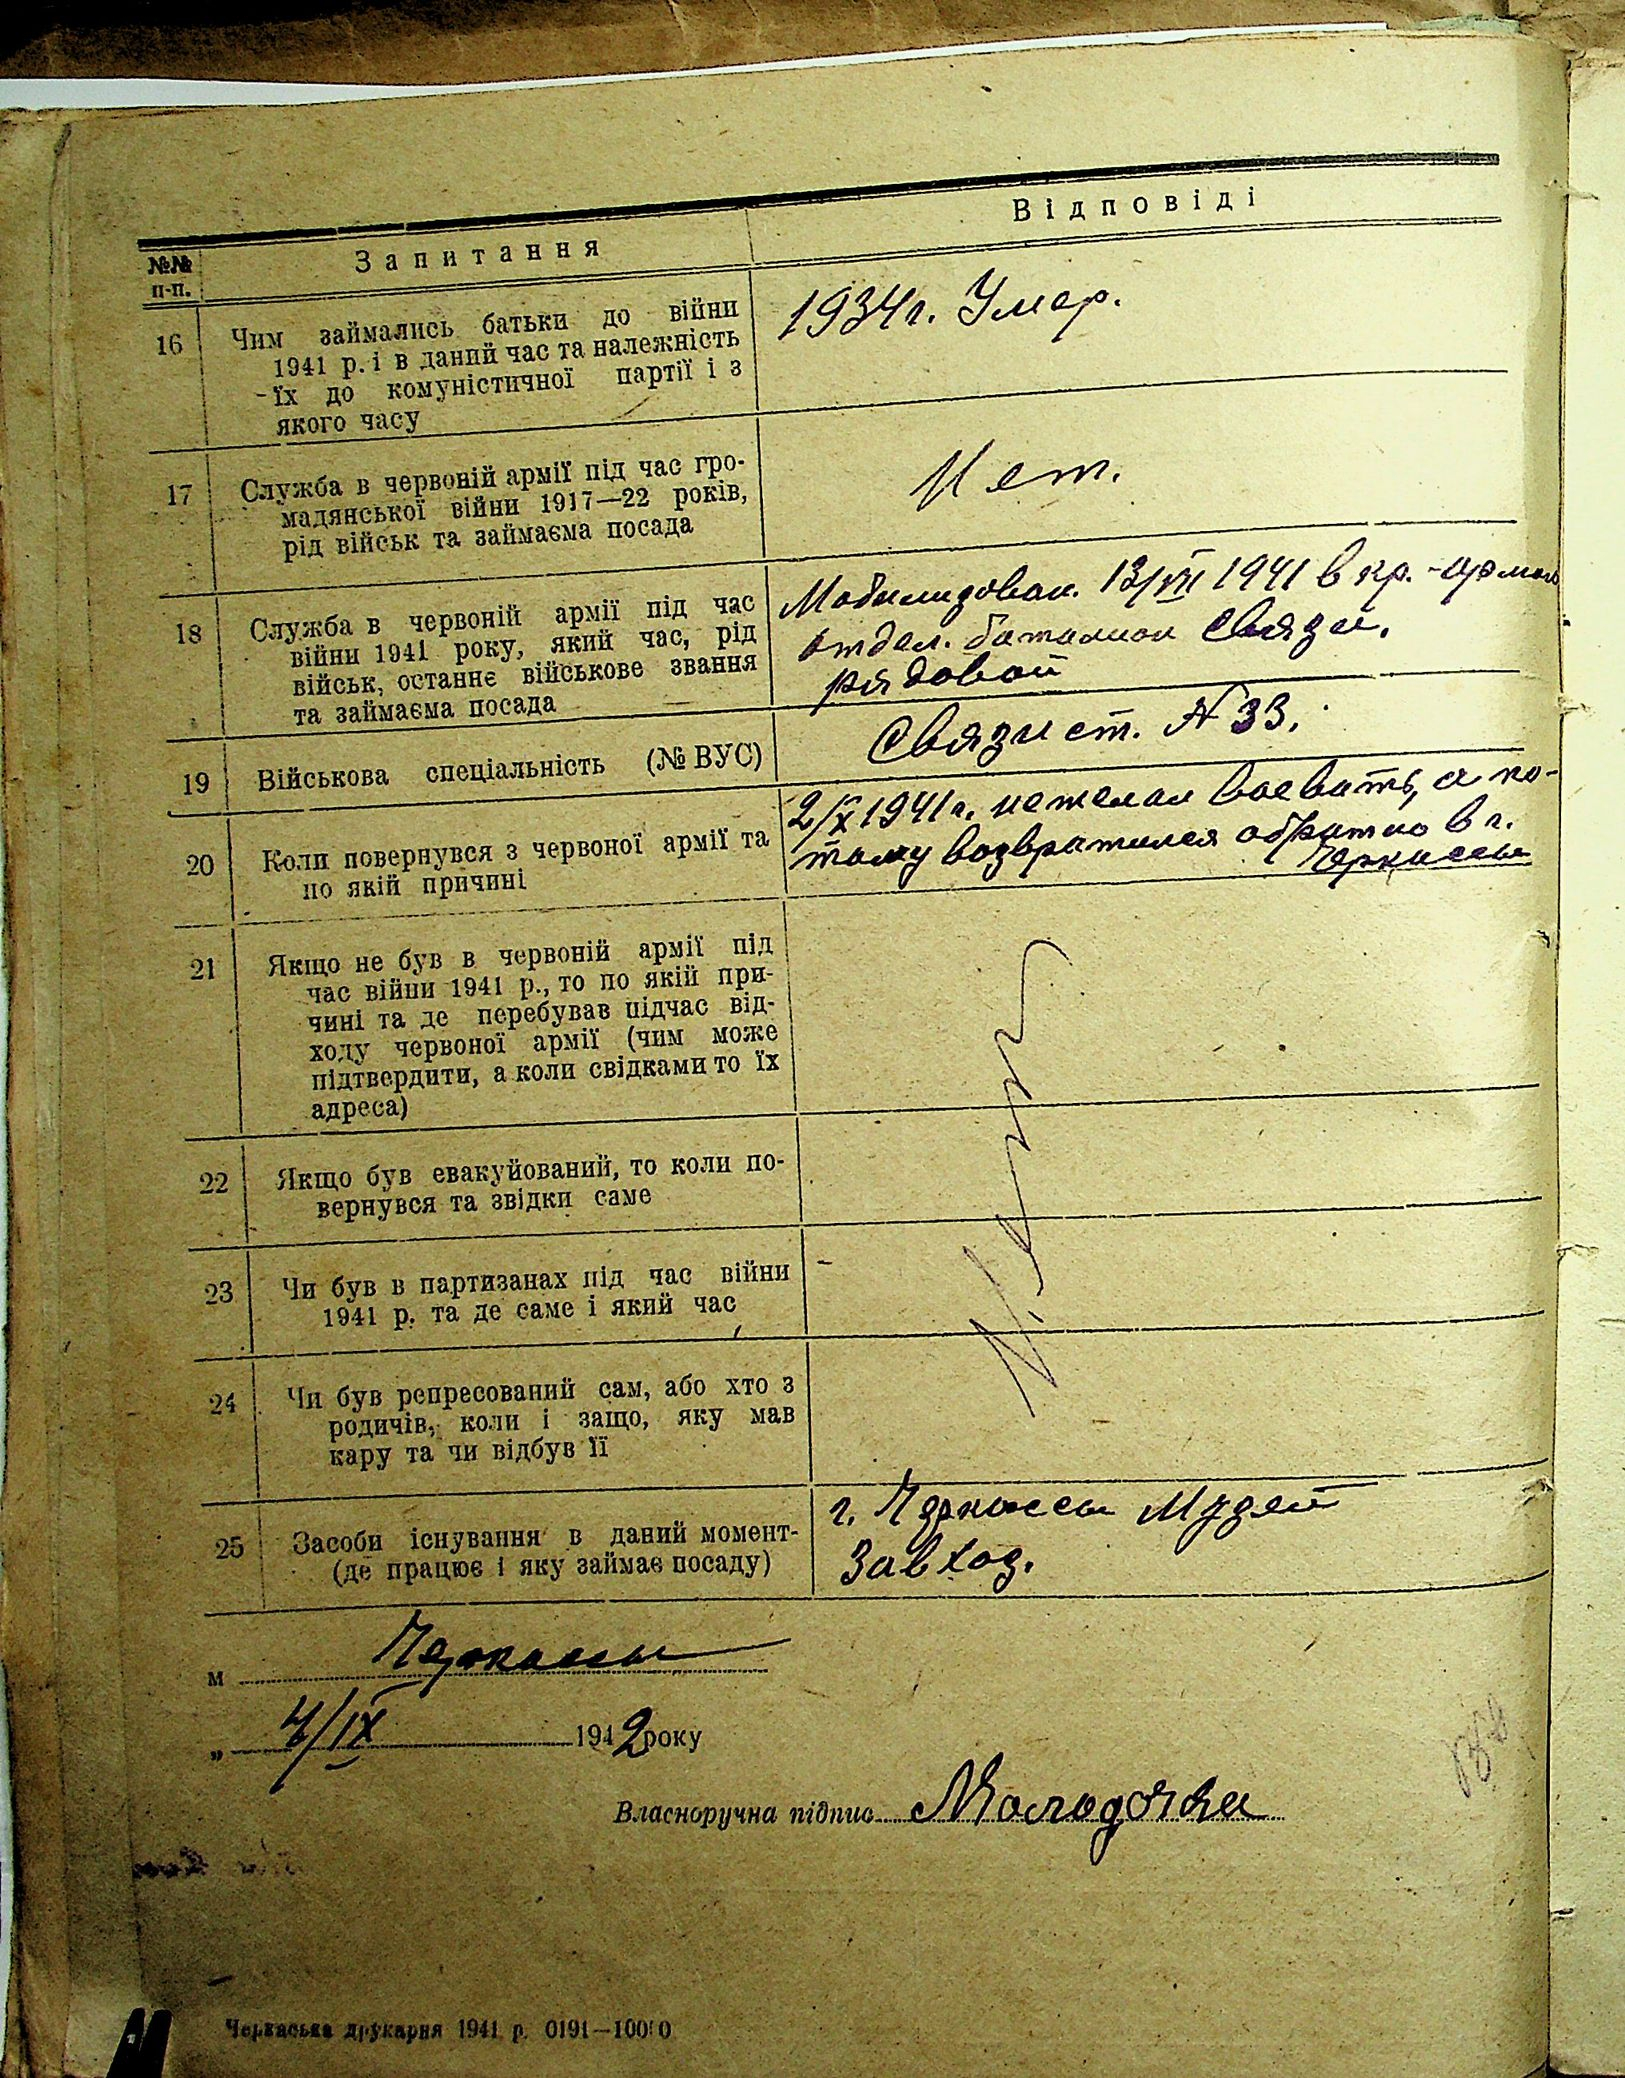 №№ п-п.
Запитання
Відповіді
16
Чим займались батьки до війни
1941 р. і в даний час та належність
їх до комуністичної партії і з
якого часу
1934 г. Умер.
17
Служба в червоній армії під час гро-
мадянської війни 1917—22 років,
рід військ та займаєма посада
Нет.
18
Служба в червоній армії під час
війни 1941 року, який час, рід
військ, останнє військове звання
та займаєма посада
Мобилизован. 13/VII 1941 в кр.-армию
отдел. баталион связи.
рядовой
19
Військова спеціальність (№ ВУС)
Связист. N 33.
20
Коли повернувся з червоної армії та
по якій причині
2/X 1941 г. нежелал воевать, а по-
тому возвратился обратно в г.
Черкассы
21
Якщо не був в червоній армії під
час війни 1941 р., то по якій при-
чині та де перебував підчас від-
ходу червоної армії (чим може
підтвердити, а коли свідками то їх
адреса)
22
Якщо був евакуйований, то коли по-
вернувся та звідки саме
23
Чи був в партизанах під час війни
1941 р. та де саме і який час
24
Чи був репресований сам, або хто з
родичів, коли і защо, яку мав
кару та чи відбув її
Нет
25
Засоби існування в даний момент-
(де працює і яку займає посаду)
г. Черкассы Музей
Завхоз.
м Черкассы
„ 4/IX 1942 року
Власноручна підпис
Черкаська друкарня 1941 р. 0191—10000